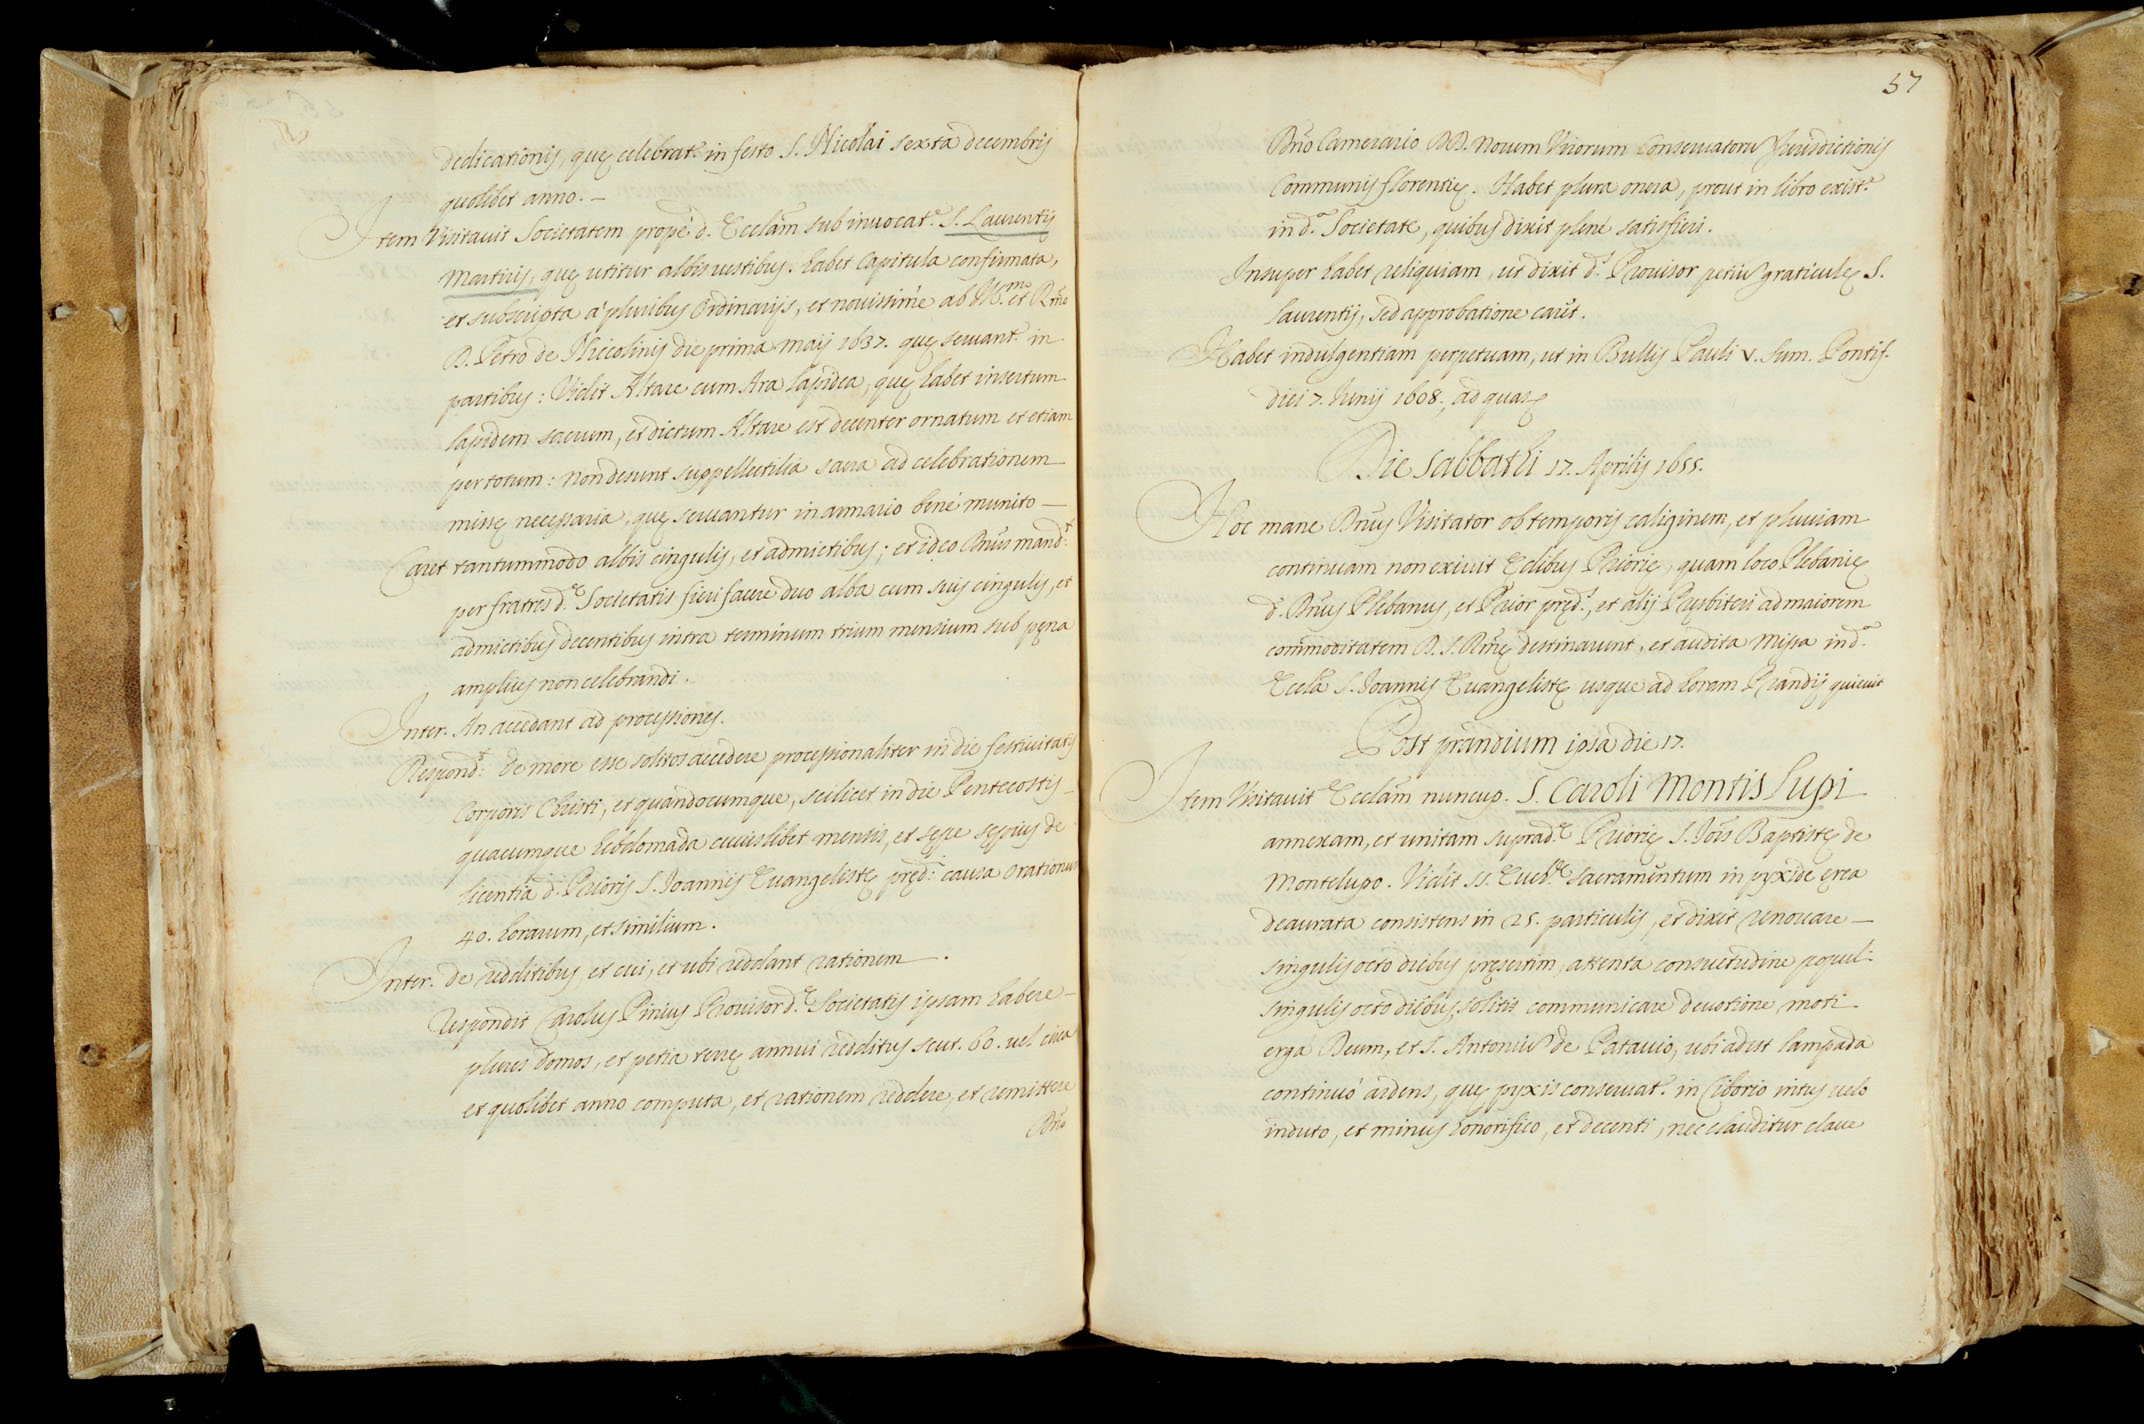 dedicationis, quę celebrat.r in festo S. Nicolai sexta decembris
quolibet anno. –
Item Visitauit Societatem propè d. Eccl̃am sub inuocat.e S. Laurentij
Martiris, quę utitur albis uestibus. habet Capitula confirmata,
et subscripta à pluribus Ordinarijs, et nouissimè ab Ill.mo et Rm̃o
D. Petro de Niccolinis die prima maij 1637. quę seruant.r in
partibus: Vidit Altare cum Ara lapidea, quę habet insertum
lapidem sacrum, et dictum Altare est decenter ornatum et etiam
per totum: non desunt suppellectilia sacra ad celebrationem
missę necessaria, quę seruantur in armario benè munito –
Caret tantummodo albis cingulis, et admictibus; et ideo Dñus mand.t
per fratres d.ę Societatis fieri facere duo alba cum suis cingulis, et
admictibus decentibus intra terminum trium mensium sub pęna
amplius non celebrandi.
Inter. An accedant ad processiones.
Respond.t de more esse solitos accedere processionaliter in die festiuitatis
Corporis Christi, et quandocumque, scilicet in die Pentecostis –
quacumque hebdomada cuiuslibet mensis, et sępe sępius de
licentia d. Prioris S. Joannis Euangelistę pręd.i causa orationum
40. horarum, et similium.
Inter. de redditibus, et cui, et ubi reddant rationem.
Respondit Carolus Pinius Prouisor d.ę Societatis ipsam habere –
plures domos, et petia terrę annui redditus scut. 60. uel circa
et quolibet anno computa, et rationem reddere, et remittere
Dño
57
Dño Camerario DD. Nouem Virorum Conseruatorũ Jurisdictionis
Communis florentię. Habet plura onera, prout in libro exist.e
in d.a Societate, quibus dixit plenè satisfieri.
Insuper habet reliquiam, ut dixit d.s Prouisor petiũ graticulę S.
Laurentij, sed approbatione caret.
Habet indulgentiam perpetuam, ut in Bullis Pauli V. Sum. Pontif.
diei 7. Junij 1608., ad quas ę
Die sabbathi 17. Aprilis 1655.
Hoc mane Dñus Visitator ob temporis caliginem, et pluuiam
continuam non exiuit Ędibus Priorię, quam loco Plebanię
d. Dñus Plebanus, et Prior pręd.s, et alij Presbiteri ad maiorem
commoditatem D. S. Rmę destinauerunt, et audita Missa in d.a
Eccl̃a S. Joannis Euangelistę usque ad horam Prandij quieuit
Post prandium ipsa die 17.
Item Visitauit Eccl̃am nuncup. S. Caroli Montis Lupi
annexam, et unitam suprad.ę Priorię S. Jois Baptistę de
Montelupo. Vidit SS. Euch.ę Sacramentum in pyxide ęrea
deaurata consistens in 25. particulis, et dixit renouare –
singulis octo diebus pręsertim, attenta consuetudine popul.
singulis octo diebus solitis communicare deuotione moti
erga Deum, et S. Antoniũ de Patauio, ubi adest lampada
continuò ardens, quę pyxis conseruat.r in Ciborio intus uelo
induto, et minus honorifico, et decenti, nec clauditur claue